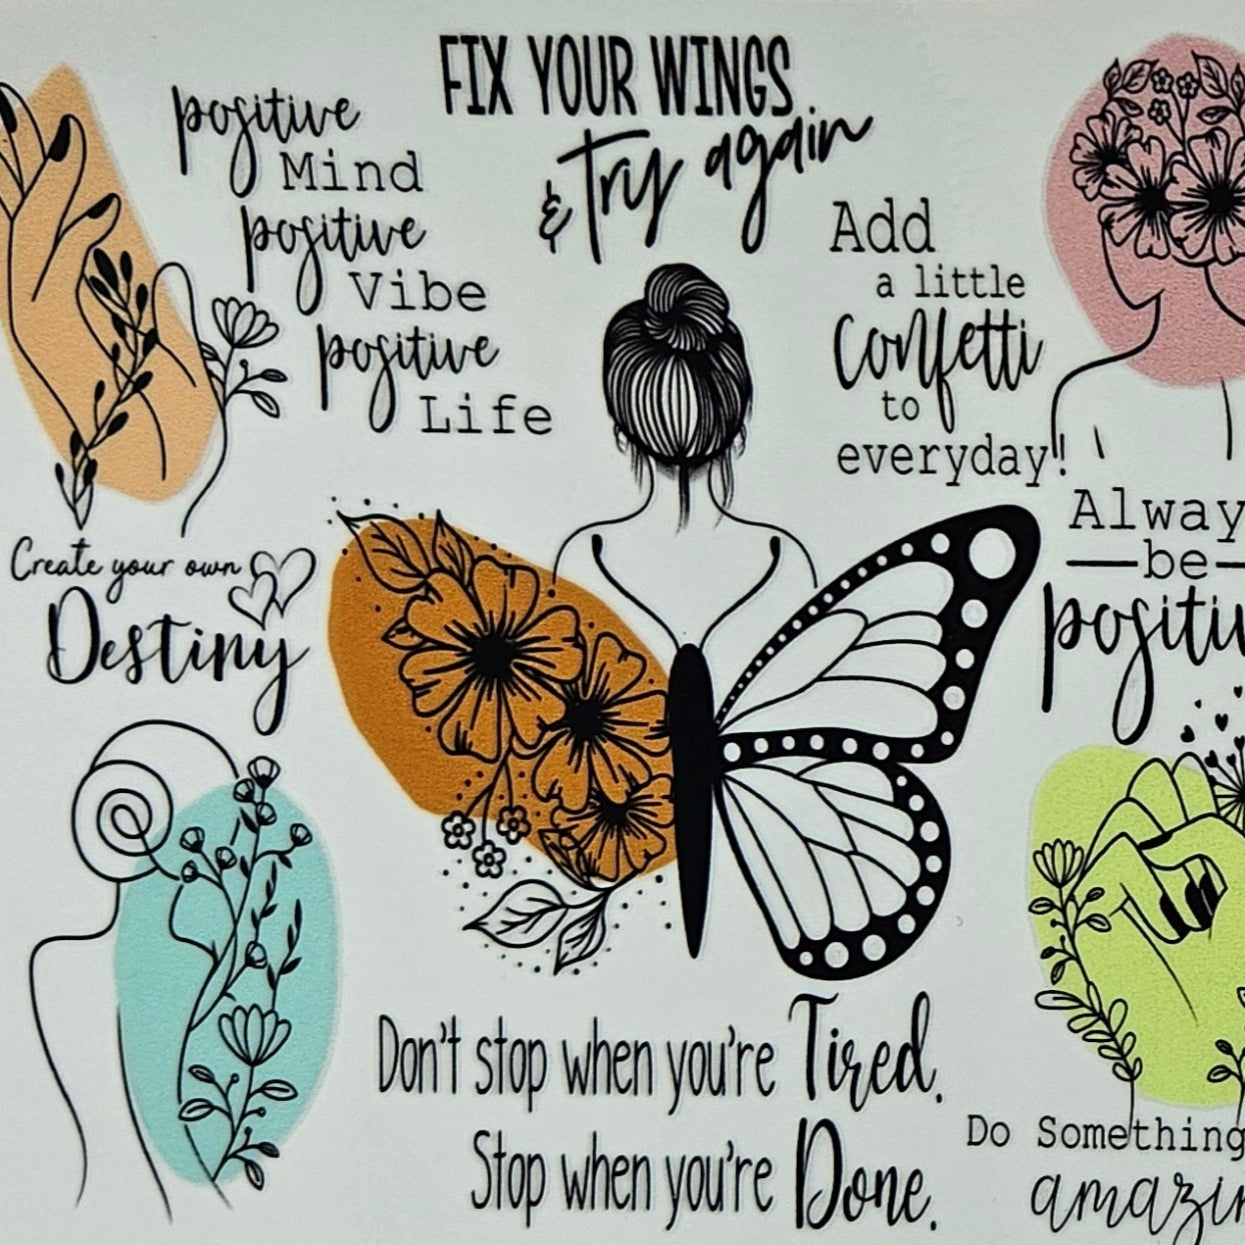 FIX YOUR WINGS
& try again
positive
Mind
positive
Vibe
positive
Life
Add
a little
Confetti
to
everyday!
Create your own
Destiny
be
Don't stop when you're Tired.
Stop when you're Done.
Do Something